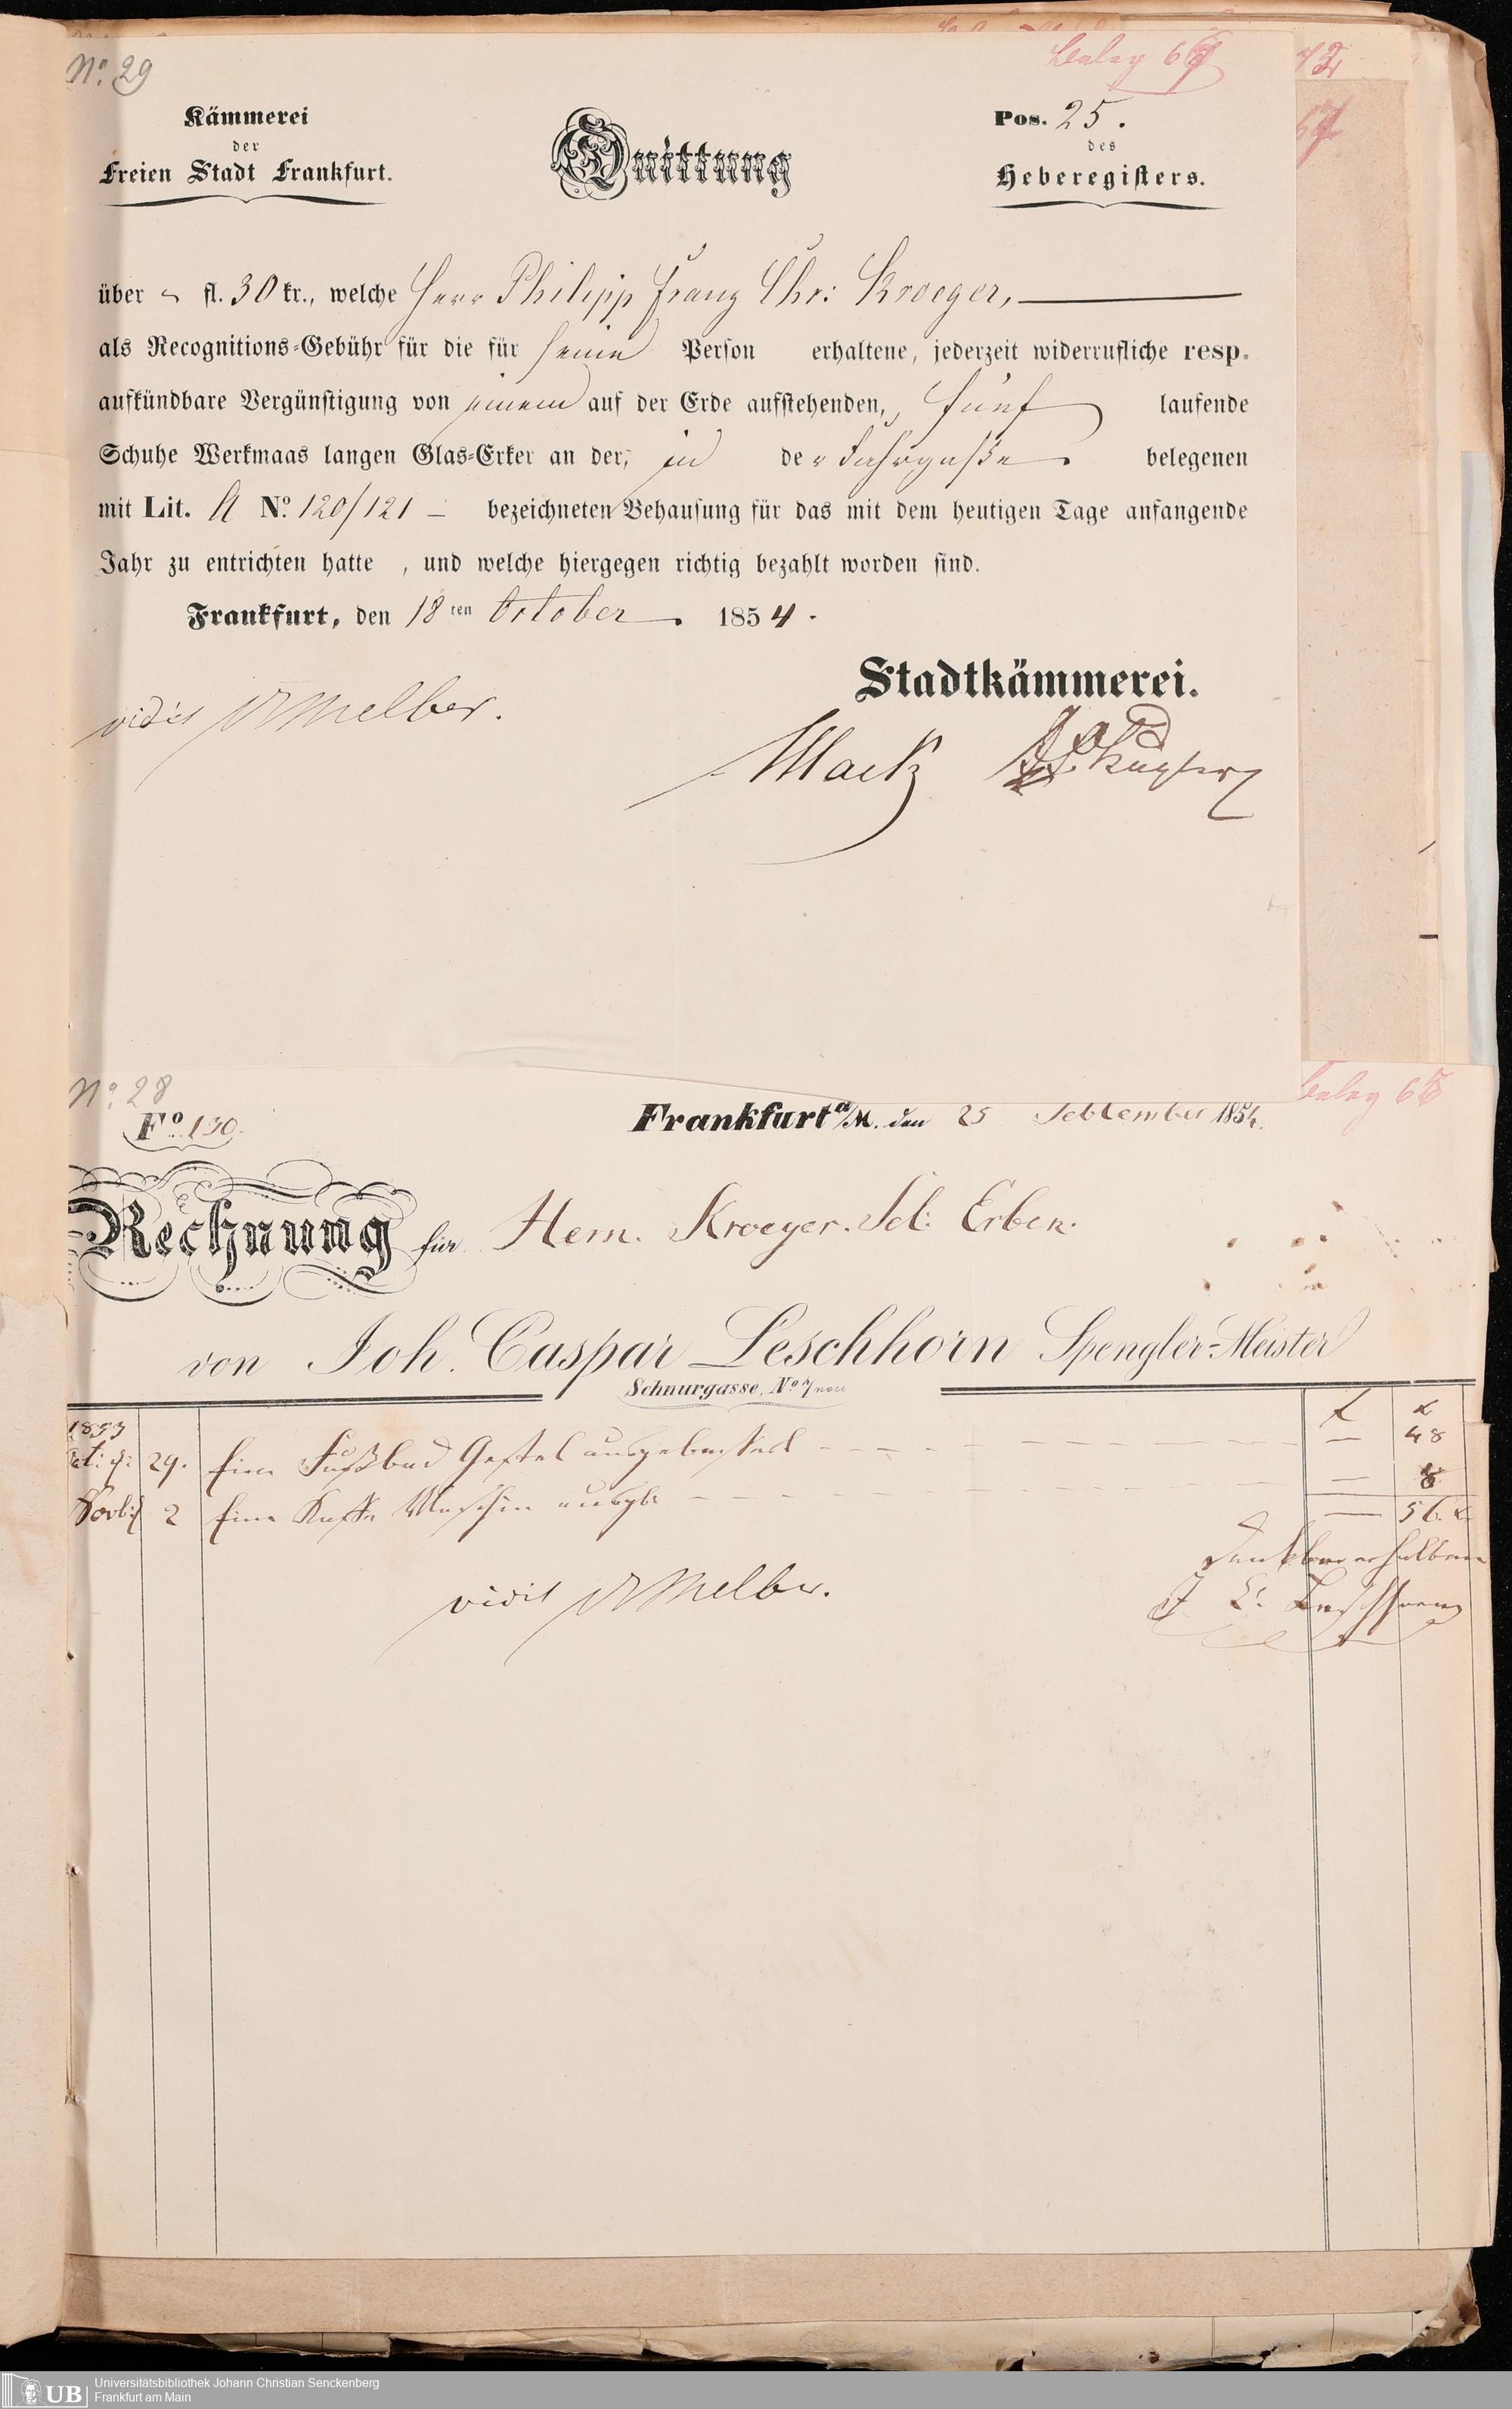 No. 29
Beleg 69
Kämmerei
der
Freien Stadt Frankfurt.
Quittung
Pos. 25.
des
Heberegisters.
über - fl. 30 kr., welche Herr Philipp Franz Chr: Kroeger,
als Recognitions-Gebühr für die für seine Person erhaltene, jederzeit widerrufliche resp.
aufkündbare Vergünstigung von einem auf der Erde aufstehenden, fünf laufende
Schuhe Werkmaas langen Glas-Erker an der, in der Fahrgaße belegenen
mit Lit. A No. 120/121 — bezeichneten Behausung für das mit dem heutigen Tage anfangende
Jahr zu entrichten hatte , und welche hiergegen richtig bezahlt worden sind.
Frankfurt, den 18ten October 1854.
Stadtkämmerei.
vidit Dr Melber.
Mack
No. 28
Beleg 68
Fo. 130.
Frankfurt a/M. den 25 September 1854.
Rechnung für Herrn. Kroeger. Sel: Erben.
von Joh. Caspar Leschhorn Spengler-Meister
Schnurgasse, No. 7 neu
1853
29. Eine Fußbad Gestel ausgebessert — 48
Novbr 2 Eine Kaffe Maschin ausgb — 8
— 56 x
Dankbar erhalten
vidit Dr Melber.
J C. Leschhorn
UB
Universitätsbibliothek Johann Christian Senckenberg
Frankfurt am Main